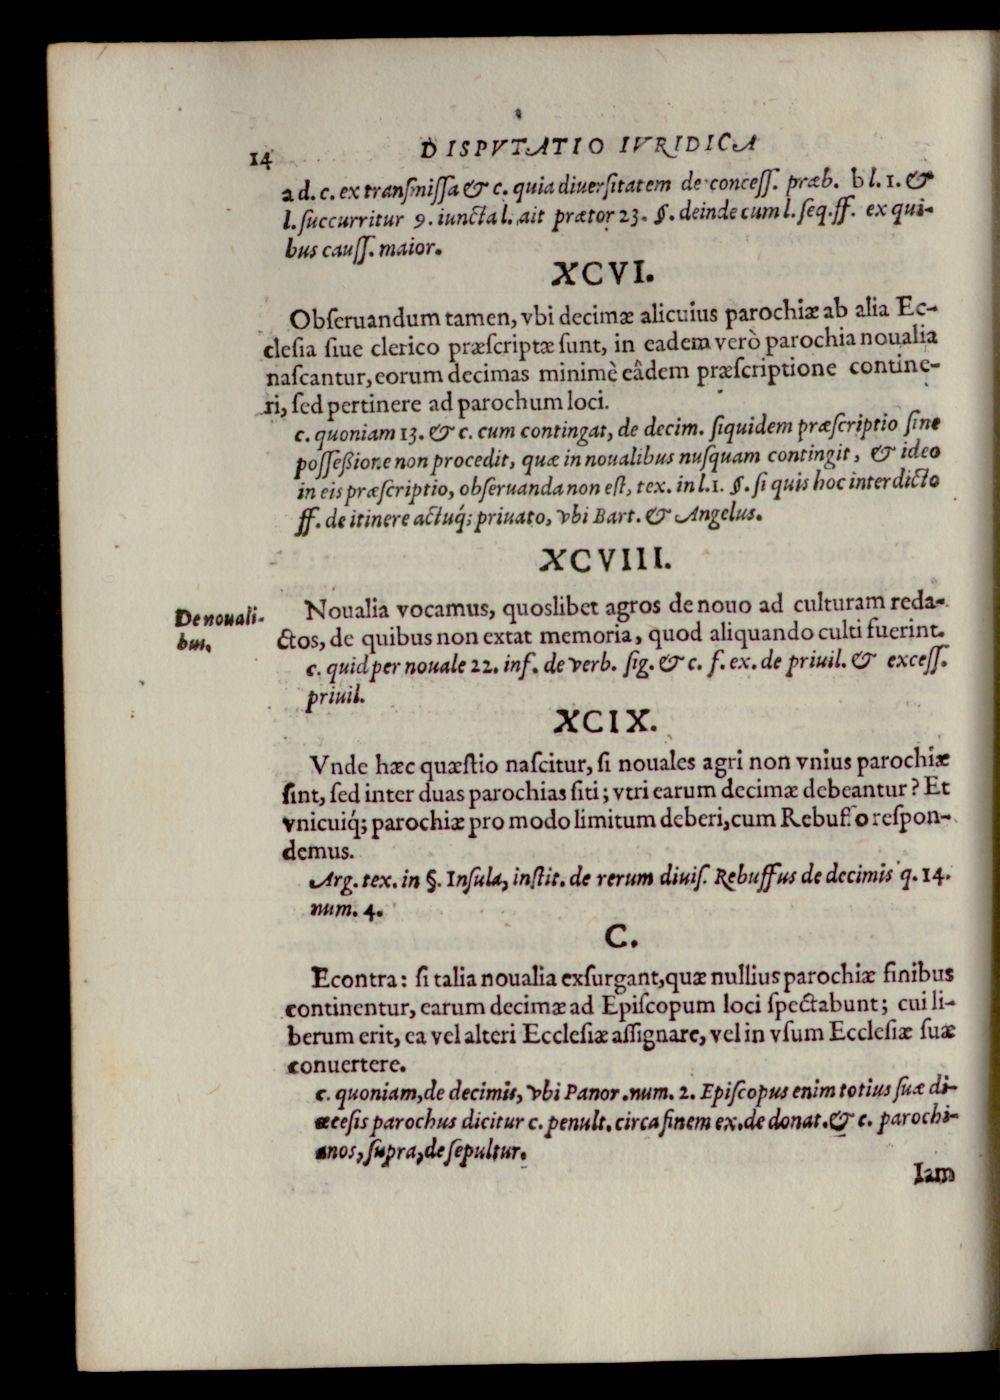 14 DISPVTATIO IVRIDICA
a d. c. ex transmiſſa & c. quia diuerſitatem de conceſſ. præb. b l. 1. &
l. ſuccurritur 9. iuncta l. ait prætor 23. §. deinde cum l. ſeq. ff. ex qui-
bus cauſſ. maior.
XCVI.
Obſeruandum tamen, vbi decimæ alicuius parochiæ ab alia Ec-
cleſia ſiue clerico præſcriptæ ſunt, in eadem verò parochia noualia
naſcantur, eorum decimas minimè eâdem præſcriptione contine-
ri, ſed pertinere ad parochum loci.
c. quoniam 13. & c. cum contingat, de decim. ſiquidem præſcriptio ſine
poſſeßione non procedit, quæ in noualibus nuſquam contingit, & ideo
in eis præſcriptio, obſeruanda non eſt, tex. in l. 1. §. ſi quis hoc interdicto
ff. de itinere actuq́; priuato, vbi Bart. & Angelus.
XCVIII.
De nouali-
bus.
Noualia vocamus, quoslibet agros de nouo ad culturam reda-
ctos, de quibus non extat memoria, quod aliquando culti fuerint.
c. quid per nouale 22. inf. de verb. ſig. & c. f. ex. de priuil. & exceſſ.
priuil.
XCIX.
Vnde hæc quæſtio naſcitur, ſi nouales agri non vnius parochiæ
ſint, ſed inter duas parochias ſiti; vtri earum decimæ debeantur? Et
vnicuiq́; parochiæ pro modo limitum deberi, cum Rebuffo reſpon-
demus.
Arg. tex. in §. Inſula, inſtit. de rerum diuiſ. Rebuffus de decimis q. 14.
num. 4.
C.
Econtra: ſi talia noualia exſurgant, quæ nullius parochiæ finibus
continentur, earum decimæ ad Epiſcopum loci ſpectabunt; cui li-
berum erit, ea vel alteri Eccleſiæ aſſignare, vel in vſum Eccleſiæ ſuæ
conuertere.
c. quoniam, de decimis, vbi Panor. num. 2. Epiſcopus enim totius ſuæ di-
œceſis parochus dicitur c. penult. circa finem ex. de donat. & c. parochi-
anos, ſupra, de ſepultur.
Iam